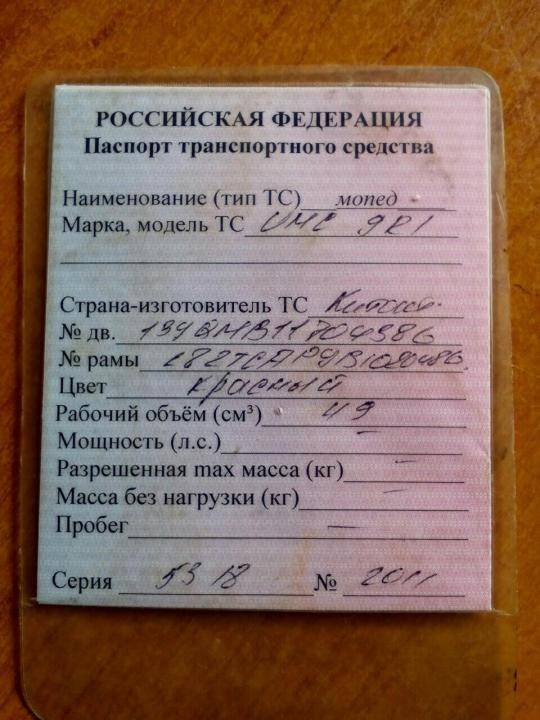 РОССИЙСКАЯ ФЕДЕРАЦИЯ
Паспорт транспортного средства
Наименование (тип ТС) мопед
Марка, модель ТС
Страна-изготовитель ТС Китай
№ дв. 139QMB11704986
№ рамы
Цвет красный
Рабочий объём (см³) 49
Мощность (л.с.) —
Разрешенная max масса (кг) —
Масса без нагрузки (кг) —
Пробег —
Серия 53 18 № 2011